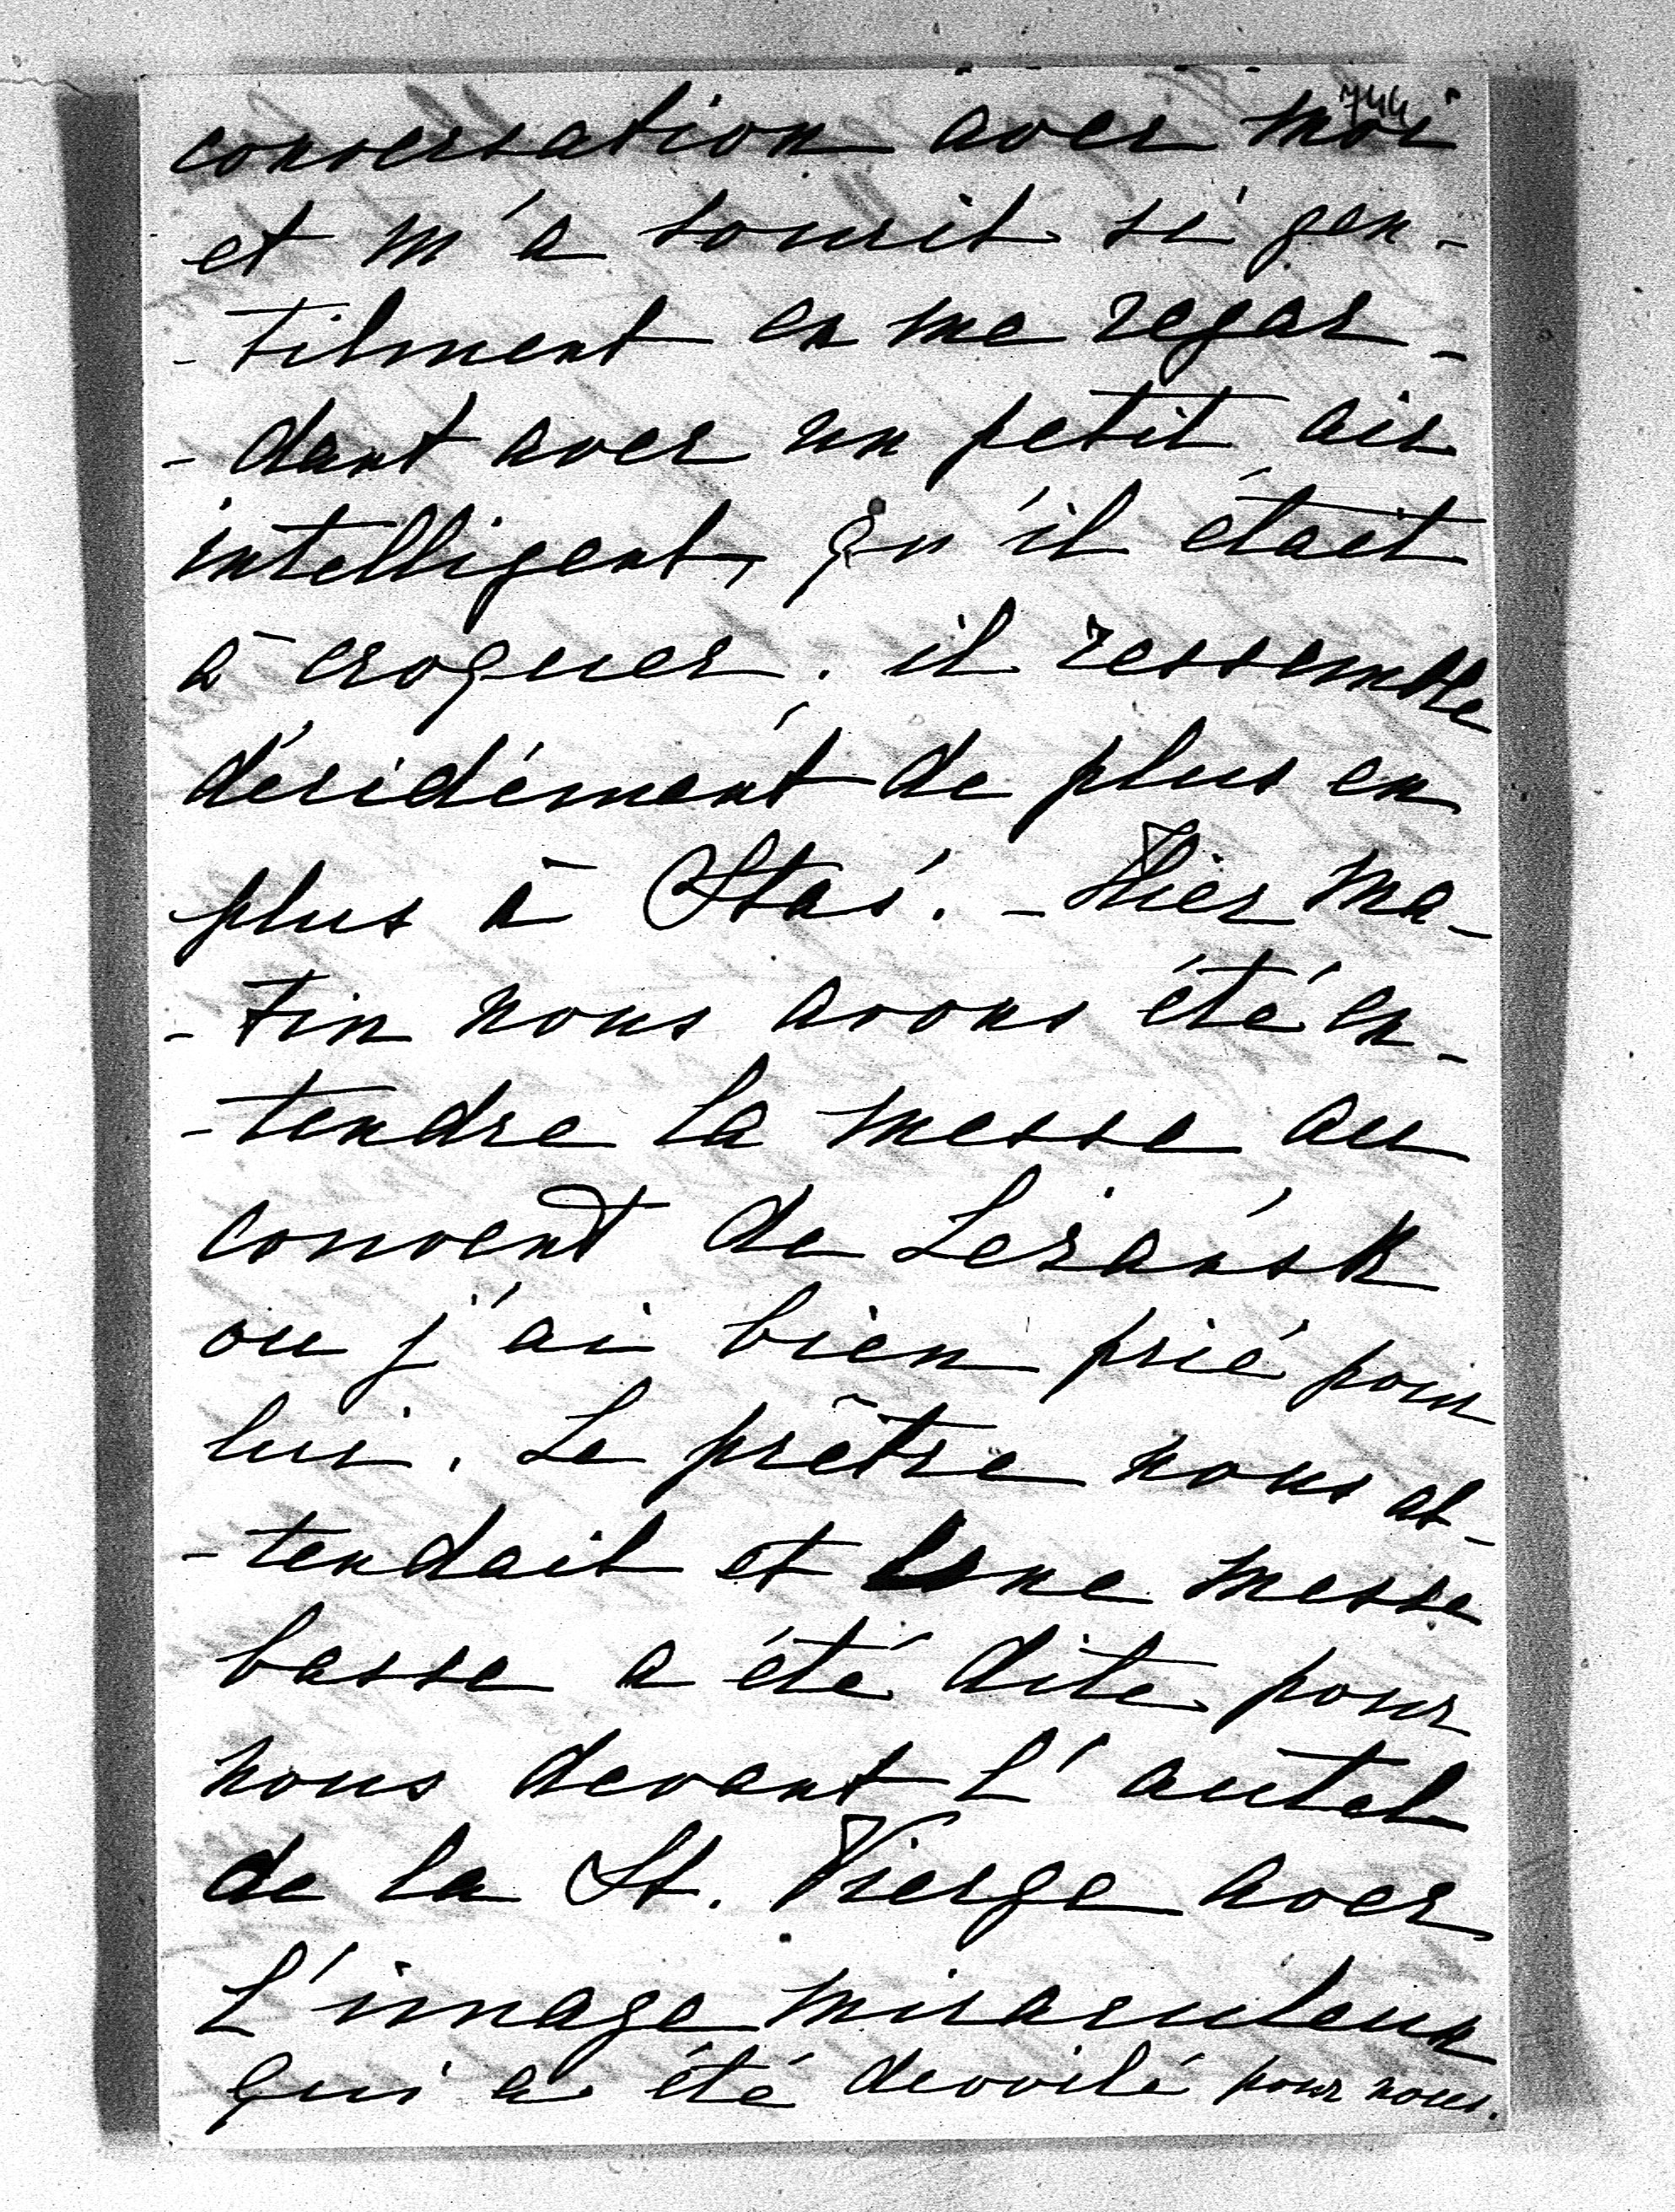 744
conversation avec moi
et m'a sourit si gen-
-tilment en me regar-
-dant avec un petit air
intelligent, qu'il était
à croquer. il ressemble
décidément de plus en
plus à Staś. - Hier ma-
-tin nous avons été en-
-tendre la messe au
couvent de Leżańsk
ou j'ai bien prié pour
lui. Le prêtre nous at-
-tendait et une messe
basse a été dite pour
nous devant l'autel
de la St. Vierge avec
l'image miraculeux
qui a été devoilé pour nous.